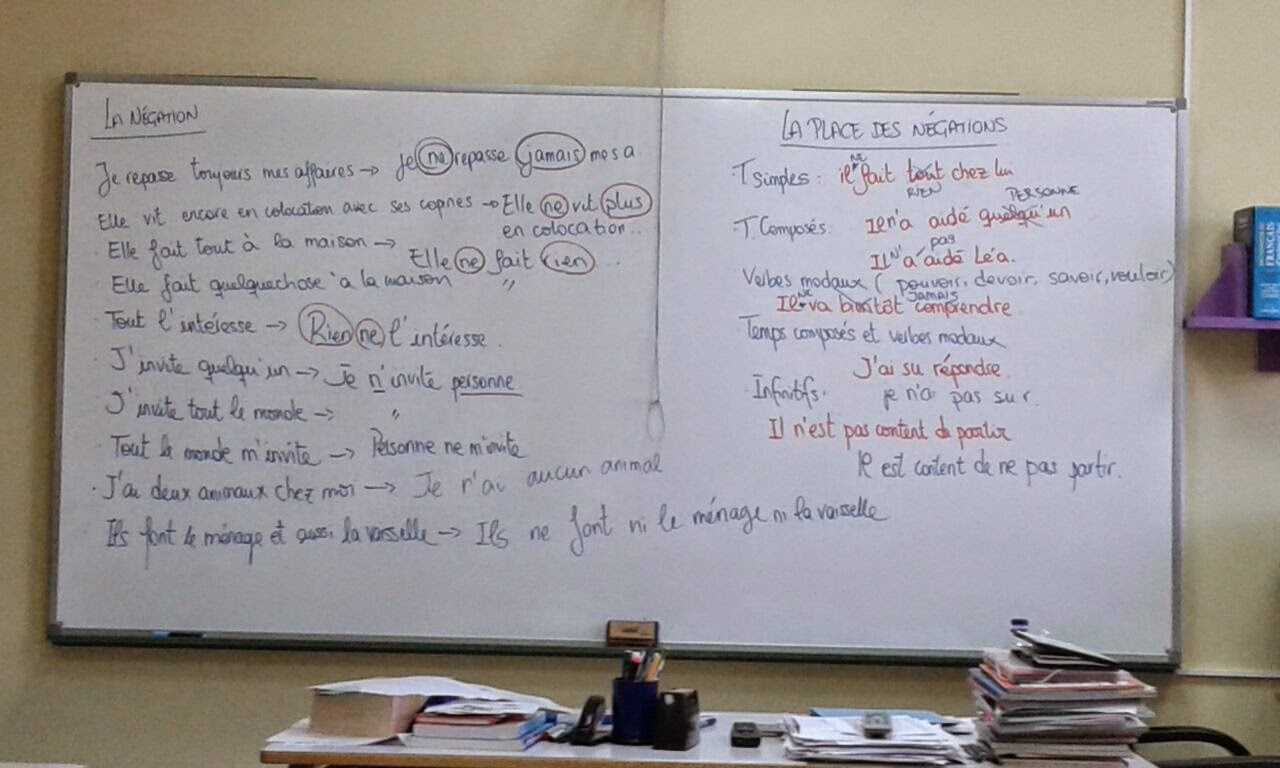 LA NÉGATION
Je repasse toujours mes affaires → je ne repasse jamais mes a
Elle vit encore en colocation avec ses copnes → Elle ne vit plus
en colocation...
Elle fait tout à la maison →
Elle ne fait rien ...
Elle fait quelquechose à la maison "
Tout l'intéresse → Rien ne l'intéresse.
J'invite quelqu'un → Je n'invite personne
J'invite tout le monde → "
Tout le monde m'invite → Personne ne m'invite
J'ai deux animaux chez moi → Je n'ai aucun animal
Ils font le ménage et aussi la vaisselle → Ils ne font ni le ménage ni la vaisselle
LA PLACE DES NÉGATIONS
NE
T simples: il fait tout chez lui
RIEN
PERSONNE
T. Composés: Il n'a aidé quelqu'un
pas
Il n'a aidé Léa.
Verbes modaux (pouvoir, devoir, savoir, vouloir)
NE JAMAIS
Il va bientôt comprendre.
Temps composés et verbes modaux
J'ai su répondre.
Infinitifs. je n'ai pas su r.
Il n'est pas content de partir
Il est content de ne pas partir.
FRANÇAIS